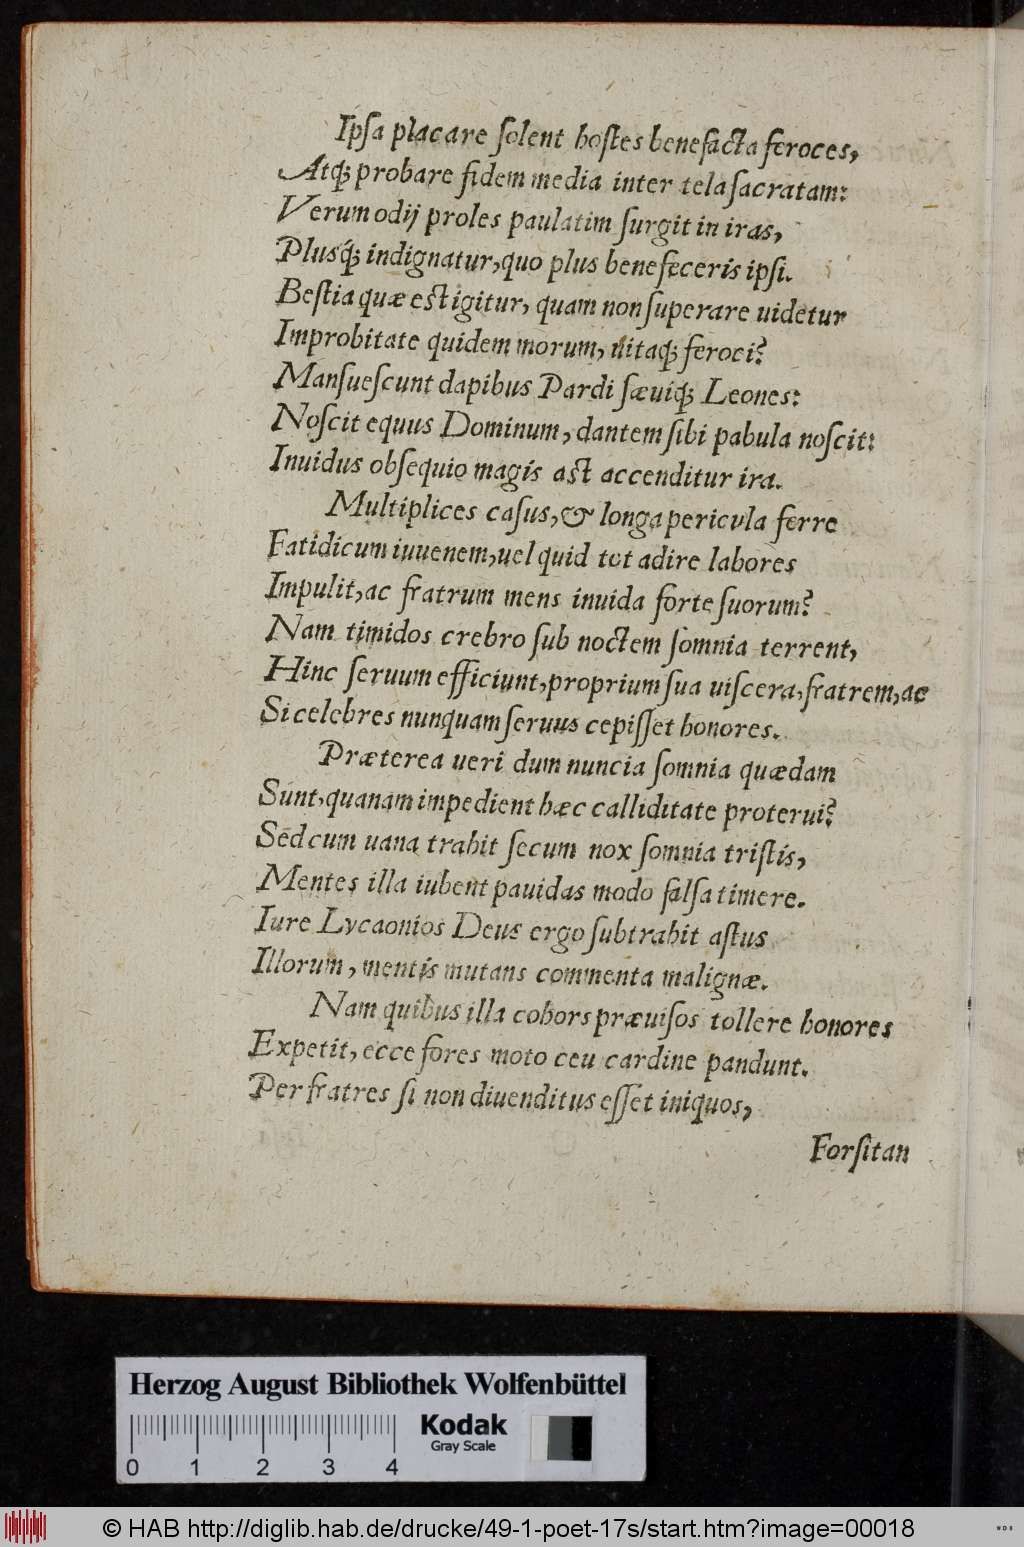 Ipſa placare ſolent hoſtes benefacta feroces,
Atq; probare fidem media inter tela ſacratam:
Verum odij proles paulatim ſurgit in iras,
Plusq́; indignatur, quo plus benefeceris ipſi.
Beſtia quæ eſt igitur, quam non ſuperare uidetur
Improbitate quidem morum, uitaq; feroci?
Manſueſcunt dapibus Pardi ſæuiq; Leones:
Noſcit equus Dominum, dantem ſibi pabula noſcit:
Inuidus obſequio magis aſt accenditur ira.
Multiplices caſus, & longa pericula ferre
Fatidicum iuuenem, uel quid tot adire labores
Impulit, ac fratrum mens inuida forte ſuorum?
Nam timidos crebro ſub noctem ſomnia terrent,
Hinc ſeruum efficiunt, proprium ſua uiſcera, fratrem, ac
Si celebres nunquam ſeruus cepiſſet honores.
Præterea ueri dum nuncia ſomnia quædam
Sunt, quanam impedient hæc calliditate proterui?
Sed cum uana trahit ſecum nox ſomnia triſtis,
Mentes illa iubent pauidas modo falſa timere.
Iure Lycaonios Deus ergo ſubtrahit aſtus
Illorum, mentis mutans commenta malignæ.
Nam quibus illa cohors præuiſos tollere honores
Expetit, ecce fores moto ceu cardine pandunt.
Per fratres ſi non diuenditus eſſet iniquos,
Forſitan
Herzog August Bibliothek Wolfenbüttel
Kodak
Gray Scale
0 1 2 3 4
© HAB http://diglib.hab.de/drucke/49-1-poet-17s/start.htm?image=00018
WDB